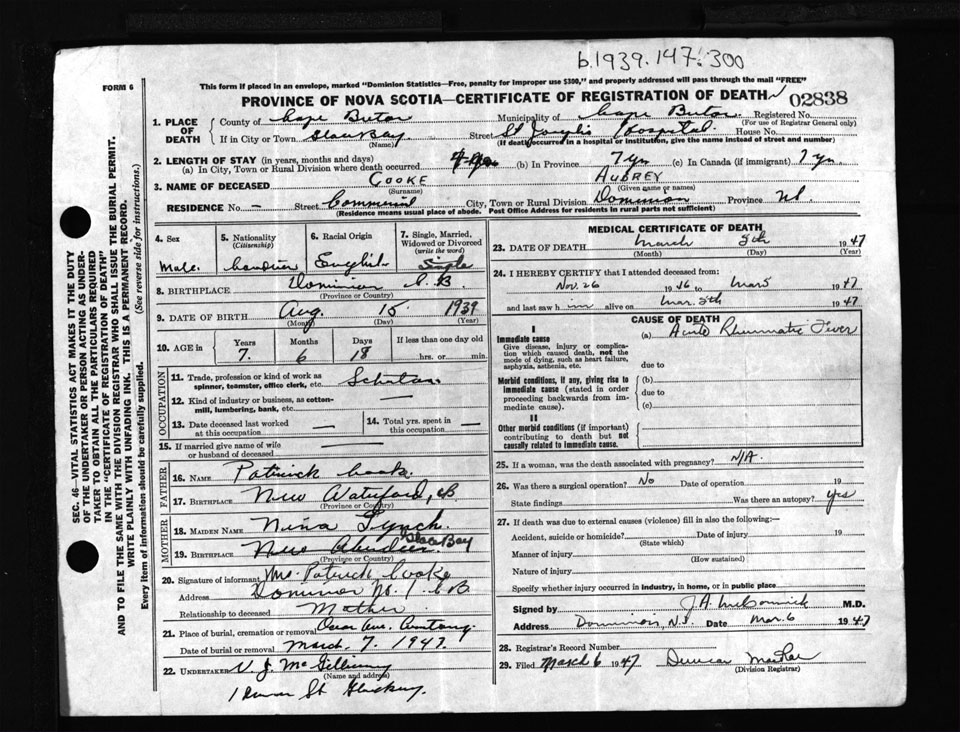 b.1939.147:300
FORM 6
This form if placed in an envelope, marked "Dominion Statistics—Free, penalty for improper use $300," and properly addressed will pass through the mail "FREE"
PROVINCE OF NOVA SCOTIA—CERTIFICATE OF REGISTRATION OF DEATH
02838
1. PLACE OF DEATH
County of Cape Breton Municipality of Cape Breton Registered No.
(For use of Registrar General only)
If in City or Town Glace Bay Street St Joseph's Hospital House No.
(Name) (If death occurred in a hospital or institution, give the name instead of street and number)
2. LENGTH OF STAY (in years, months and days)
(a) In City, Town or Rural Division where death occurred (b) In Province 7 yrs (c) In Canada (if immigrant) 7 yrs.
3. NAME OF DECEASED COOKE AUBREY
(Surname) (Given name or names)
RESIDENCE No. — Street Commercial City, Town or Rural Division Dominion Province NS
(Residence means usual place of abode. Post Office Address for residents in rural parts not sufficient)
4. Sex
Male.
5. Nationality (Citizenship)
Canadian
6. Racial Origin
English
7. Single, Married, Widowed or Divorced (write the word)
Single
8. BIRTHPLACE Dominion C.B.
(Province or Country)
9. DATE OF BIRTH Aug. 15 1939
(Month) (Day) (Year)
10. AGE in
Years Months Days If less than one day old
7. 6 18 hrs. or min.
OCCUPATION
11. Trade, profession or kind of work as spinner, teamster, office clerk, etc.
12. Kind of industry or business, as cotton-mill, lumbering, bank, etc. —
13. Date deceased last worked at this occupation —
14. Total yrs. spent in this occupation —
15. If married give name of wife or husband of deceased
FATHER
16. Name Patrick Cooke.
17. Birthplace New Waterford, CB
MOTHER
18. MAIDEN NAME Nina Lynch.
19. BIRTHPLACE New Aberdeen Glace Bay
(Province or Country)
20. Signature of informant Mrs. Patrick Cooke
Address Dominion No. 1 C.B.
Relationship to deceased Mother
21. Place of burial, cremation or removal
Date of burial or removal March 7. 1947.
22. UNDERTAKER V. J. McGillivary
(Name and address)
St
MEDICAL CERTIFICATE OF DEATH
23. DATE OF DEATH March 5th 1947
(Month) (Day) (Year)
24. I HEREBY CERTIFY that I attended deceased from:
Nov. 26 1946 to Mar 5 1947
and last saw him alive on Mar. 5th 1947
CAUSE OF DEATH
I
Immediate cause
Give disease, injury or complication which caused death, not the mode of dying, such as heart failure, asphyxia, asthenia, etc.
(a) Acute Rheumatic Fever
due to
Morbid conditions, if any, giving rise to immediate cause (stated in order proceeding backwards from immediate cause).
(b)
due to
(c)
II
Other morbid conditions (if important) contributing to death but not causally related to immediate cause.
25. If a woman, was the death associated with pregnancy? N/A.
26. Was there a surgical operation? No Date of operation 19
State findings Was there an autopsy? yes
27. If death was due to external causes (violence) fill in also the following:—
Accident, suicide or homicide? Date of injury 19
(State which)
Manner of injury
(How sustained)
Nature of injury
Specify whether injury occurred in industry, in home, or in public place
Signed by J.A. McCormick M.D.
Address Dominion, N.S. Date Mar. 6 1947
28. Registrar's Record Number
29. Filed March 6 1947 Duncan MacRae
(Division Registrar)
SEC. 46—VITAL STATISTICS ACT MAKES IT THE DUTY
OF THE UNDERTAKER OR PERSON ACTING AS UNDER-
TAKER TO OBTAIN ALL THE PARTICULARS REQUIRED
IN THE "CERTIFICATE OF REGISTRATION OF DEATH"
AND TO FILE THE SAME WITH THE DIVISION REGISTRAR WHO SHALL ISSUE THE BURIAL PERMIT.
WRITE PLAINLY WITH UNFADING INK. THIS IS A PERMANENT RECORD.
Every item of information should be carefully supplied. (See reverse side for instructions.)